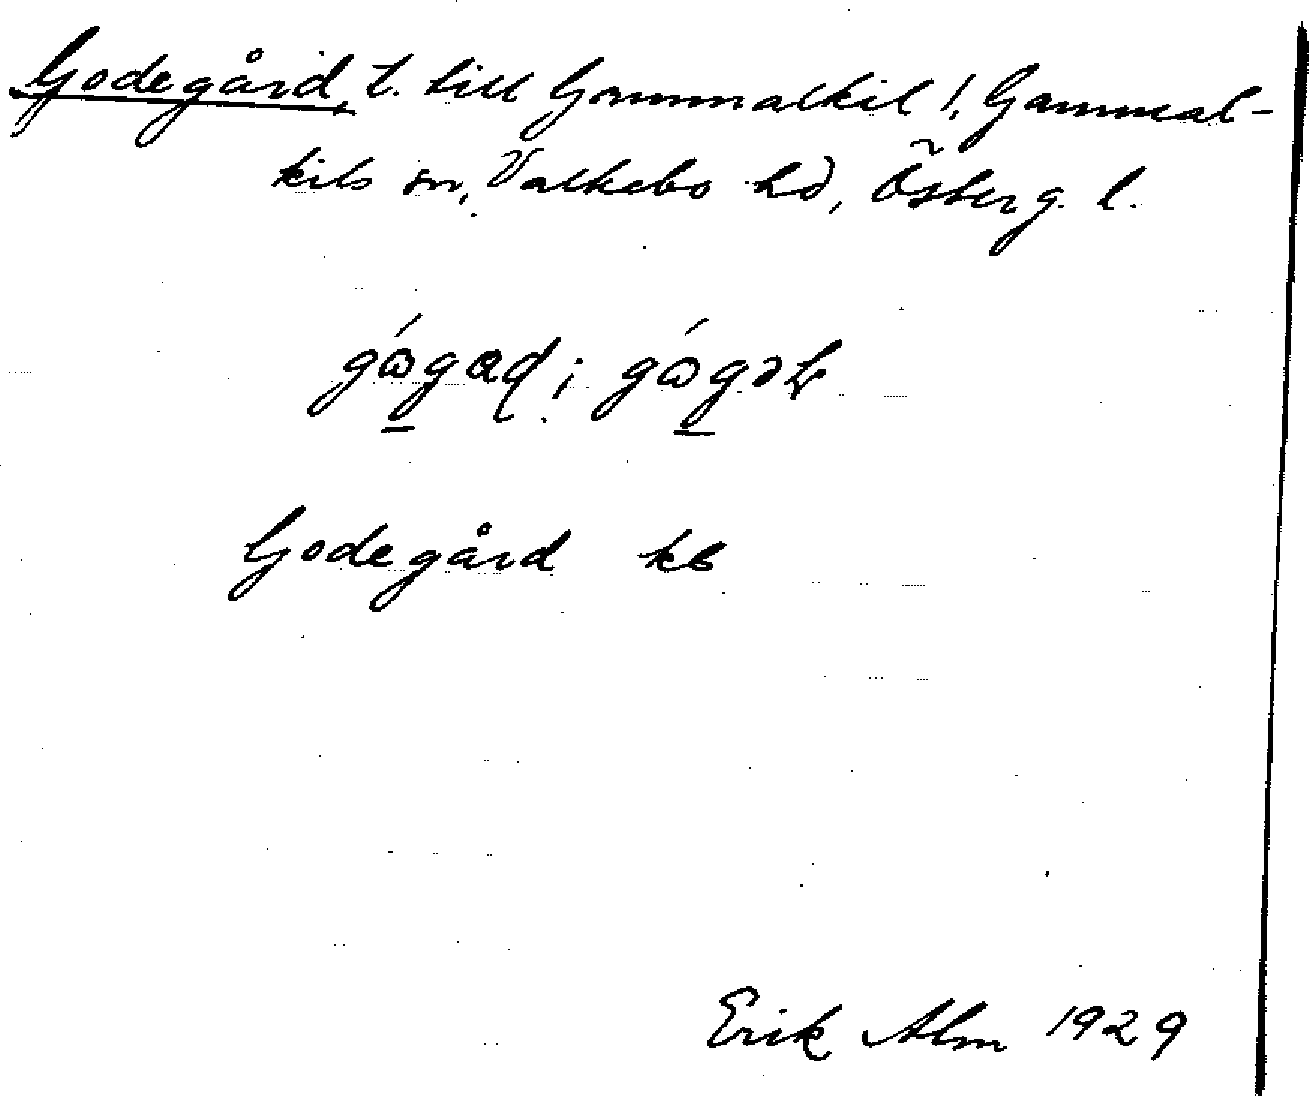 Godegård, t. till Gammalkil i Gammal-
kils sn, Valkebo hd, Österg. l.
Godegård kb
Erik Alm 1929